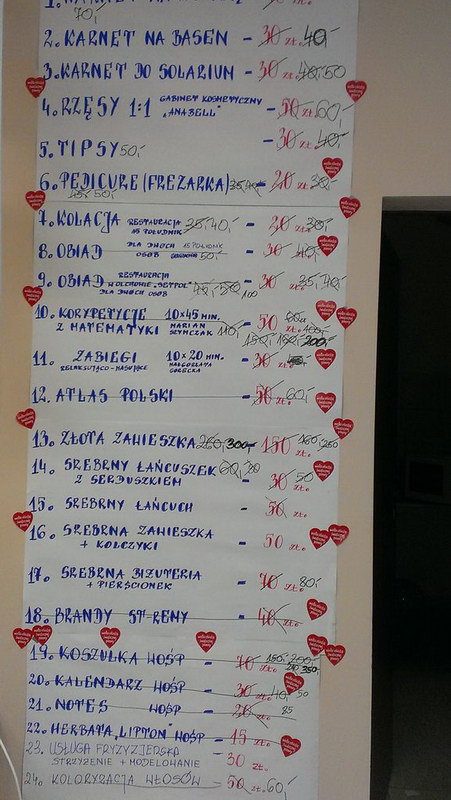 70,-
2. KARNET NA BASEN - 30 zł. 40,-
3. KARNET DO SOLARIUM - 30 zł. 40,- 50
4. RZĘSY 1:1 GABINET KOSMETYCZNY - 50 zł. 60,-
„ANABELL"
5. TIPSY 50,- - 30 zł. 40,-
6. PEDICURE (FREZARKA) 35,- 40,- - 20 zł. 30,-
45,- 50,-
7. KOLACJA RESTAURACJA 35,- 40,- - 20 zł. 30,-
15 POŁUDNIK
8. OBIAD DLA DWÓCH 15 POŁUDNIK - 30 zł. 40,-
OSÓB 50,-
9. OBIAD RESTAURACJA - 30 zł. 35,- 40,-
DLA DWÓCH OSÓB 100
10. KOREPETYCJE 10 x 45 MIN. - 50 zł. 60
Z MATEMATYKI MARIAN SZYMCZAK 110,- 100,-
150,- 200,-
11. ZABIEGI 10 x 20 MIN. - 30 zł.
RELAKSUJĄCO-MASUJĄCE MAŁGORZATA
12. ATLAS POLSKI - 50 zł. 60,-
13. ZŁOTA ZAWIESZKA 260,- 300,- - 150 zł. 160,- 250
14. SREBRNY ŁAŃCUSZEK 60,- 70 - 30 zł. 50
Z SERDUSZKIEM
15. SREBRNY ŁAŃCUCH - 50 zł.
16. SREBRNA ZAWIESZKA - 50 zł.
+ KOLCZYKI
17. SREBRNA BIŻUTERIA - 70 zł. 80,-
+ PIERŚCIONEK
18. BRANDY ST REMY - 40 zł.
19. KOSZULKA WOŚP - 70 zł. 150,- 200,-
350,-
20. KALENDARZ WOŚP - 30 zł. 40,- 50
21. NOTES WOŚP - 20 zł. 85
22. HERBATA „LIPTON" WOŚP - 15 zł.
23. USŁUGA FRYZYJERSKA
STRZYŻENIE + MODELOWANIE 30 zł.
24. KOLORYZACJA WŁOSÓW - 50 zł. 60,-